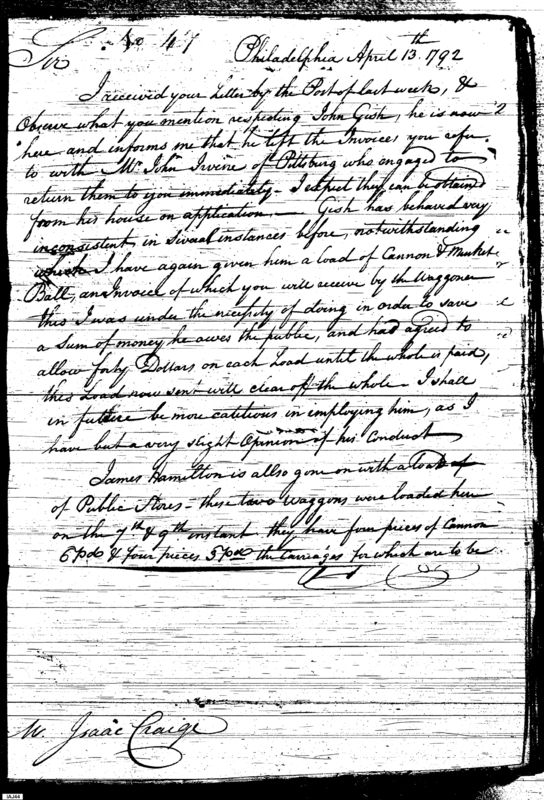 No 47
Sir Philadelphia April 13th 1792
I received your Letter by the Post of last week, &
Observe what you mention respecting John Gish, he is now
here and informs me that he left the Invoices you refer
to with Mr John Irvine of Pittsburg who engaged to
return them to you immediately – I expect they can be obtained
from his house on application. — Gish has behaved very
inconsistent in Sivaal instances before, notwithstanding
which I have again given him a load of Cannon & Musket
Ball, an Invoice of which you will receive by the Waggoner
this I was under the necessity of doing in order to save
a Sum of money he owes the public, and had agreed to
allow forty Dollars on each Load until the whole is paid,
this Load now sent will clear off the whole – I shall
in future be more catitious in employing him, as I
have but a very slight Opinion of his Conduct
James Hamilton is allso gone on with a load
of Public Stores – these two Waggons were loaded here
on the 7th & 9th instant they have four pieces of Cannon
6 pds & four pieces 3 pds the Carriages for which are to be
Mr. Isaac Craige
IAJ44